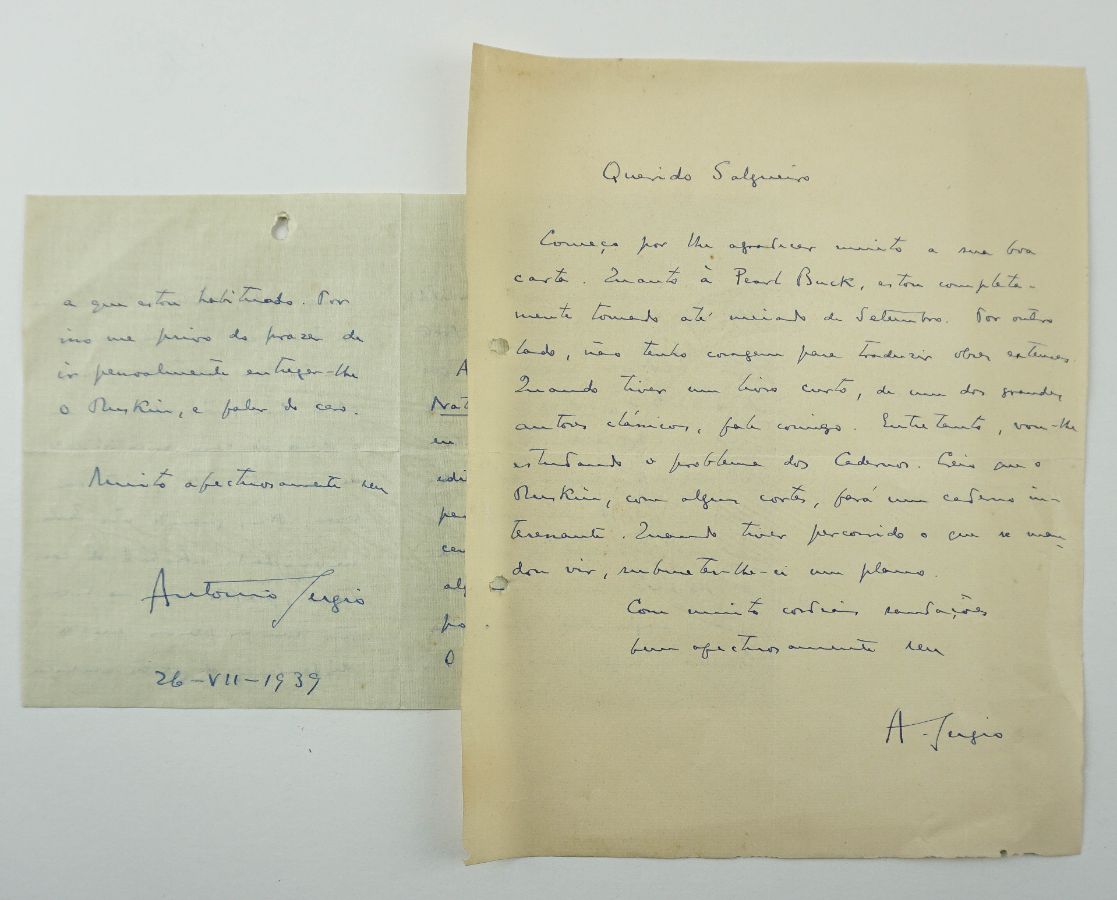 a que estou habituado. Por
isso me privo do prazer de
ir pessoalmente entregar-lhe
o Ruskin, e falar do caso.
Muito afectuosamente seu
Antonio Sergio
26-VII-1939
A
Nat
eu
edi
pe
alg
po
O
Querido Salgueiro
Começo por lhe agradecer muito a sua boa
carta. Quanto à Pearl Buck, estou completa-
mente tomado até meiado de Setembro. Por outro
lado, não tenho coragem para traduzir obras extensas.
Quando tiver um livro curto, de um dos grandes
autores clássicos, fale comigo. Entretanto, vou-lhe
estudando o problema dos Cadernos. Creio que o
Ruskin, com alguns cortes, fará um caderno in-
teressante. Quando tiver percorrido o que se man-
dou vir, submeter-lhe-ei um plano.
Com muito cordiais saudações
bem afectuosamente seu
A. Sergio